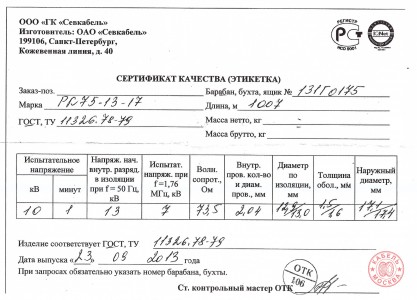 ООО «ГК «Севкабель»
Изготовитель: ОАО «Севкабель»
199106, Санкт-Петербург,
Кожевенная линия, д. 40
РЕГИСТР
РС
ISO 9001
СЕРТИФИКАТ КАЧЕСТВА (ЭТИКЕТКА)
Заказ-поз. Барабан, бухта, ящик № 131Г0175
Марка РК 75-13-17 Длина, м 1007
ГОСТ, ТУ 11326.78-79 Масса нетто, кг
Масса брутто, кг
Испытательное напряжение Напряж. нач. внутр. разряд. в изоляции при f = 50 Гц, кВ Испытат. напряж. при f =1,76 МГц, кВ Волн. сопрот., Ом Внутр. пров. кол-во и диам. пров., мм Диаметр по изоляции, мм Толщина обол., мм Наружный диаметр, мм
кВ минут
10 1 13 7 73,5 2,04 13,0 1,5 1,6 17,1 17,4
Изделие соответствует ГОСТ, ТУ 11326.78-79
Дата выпуска «23» 09 2013 года
При запросах обязательно указать номер барабана, бухты.
ОТК
106
КАБЕЛЬ
МОСКВА
Ст. контрольный мастер ОТК